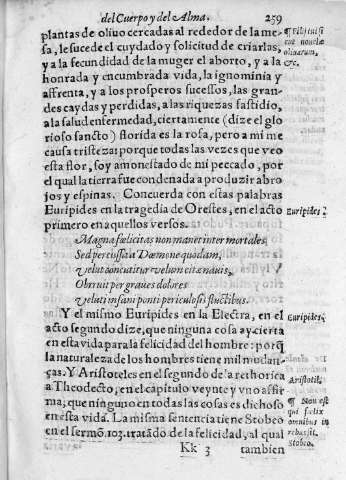 del Cuerpo y del Alma. 259
plantas de oliuo cercadas al rededor de la me-
sa, le sucede el cuydado y solicitud de criarlas,
y a la fecundidad de la muger el aborto, y a la
honrada y encumbrada vida, la ignominia y
affrenta, y a los prosperos sucessos, las gran-
des caydas y perdidas, a las riquezas fastidio,
a la salud enfermedad, ciertamente (dize el glo
rioso sancto) florida es la rosa, pero a mi me
causa tristeza: porque todas las vezes que veo
esta flor, soy amonestado de mi peccado, por
el qual la tierra fue condenada a produzir abro
jos y espinas. Concuerda con estas palabras
Euripides en la tragedia de Orestes, en el acto
primero en aquellos versos.
Magna fœlicitas non manet inter mortales,
Sed percussita Dæmone quodam,
Velut concutitur velum citæ nauis,
Obrruit per graues dolores
Veluti insani ponti periculosis fluctibus.
Y el mismo Euripides en la Electra, en el
acto segundo dize, que ninguna cosa ay cierta
en esta vida para la felicidad del hombre: porq̃
la naturaleza de los hombres tiene mil mudan-
ças. Y Aristoteles en el segundo de la rethorica
a Theodecto, en el capitulo veynte y vno affir
ma, que ninguno en todas las cosas es dichoso
en esta vida. La misma sentencia tiene Stobeo
en el sermō. 103. tratādo de la felicidad, al qual
Kk 3 tambien
¶ Filij tui si
cut nouelæ
oliuarum,
&c.
Euripides.
Euripides.
Aristotil.
¶ Non est
qui fœlix
omnibus in
rebus sit.
Stobeo.